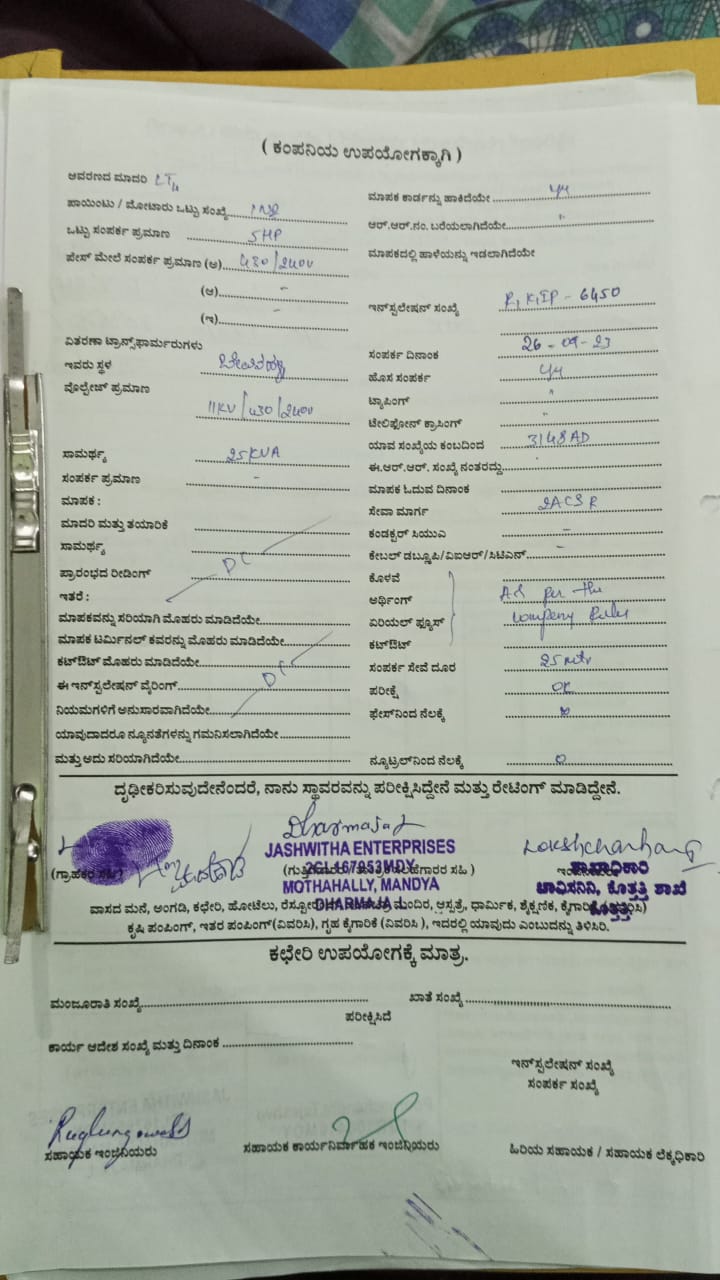 ( ಕಂಪನಿಯ ಉಪಯೋಗಕ್ಕಾಗಿ )
ಆವರಣದ ಮಾದರಿ LT4
ಪಾಯಿಂಟು / ಮೋಟಾರು ಒಟ್ಟು ಸಂಖ್ಯೆ
ಒಟ್ಟು ಸಂಪರ್ಕ ಪ್ರಮಾಣ 5HP
ಪೇಸ್ ಮೇಲೆ ಸಂಪರ್ಕ ಪ್ರಮಾಣ (ಅ) 430/240V
(ಆ) -
(ಇ) -
ವಿತರಣಾ ಟ್ರಾನ್ಸ್‌ಫಾರ್ಮರುಗಳು
ಇವರು ಸ್ಥಳ
ವೊಲ್ಟೇಜ್ ಪ್ರಮಾಣ
11KV/430/240V
ಸಾಮರ್ಥ್ಯ 25KVA
ಸಂಪರ್ಕ ಪ್ರಮಾಣ -
ಮಾಪಕ :
ಮಾದರಿ ಮತ್ತು ತಯಾರಿಕೆ
ಸಾಮರ್ಥ್ಯ
DC
ಪ್ರಾರಂಭದ ರೀಡಿಂಗ್
ಇತರೆ :
ಮಾಪಕವನ್ನು ಸರಿಯಾಗಿ ಮೊಹರು ಮಾಡಿದೆಯೇ
ಮಾಪಕ ಟರ್ಮಿನಲ್ ಕವರನ್ನು ಮೊಹರು ಮಾಡಿದೆಯೇ
ಕಟ್‌ಔಟ್ ಮೊಹರು ಮಾಡಿದೆಯೇ
DC
ಈ ಇನ್‌ಸ್ಟಲೇಷನ್ ವೈರಿಂಗ್
ನಿಯಮಗಳಿಗೆ ಅನುಸಾರವಾಗಿದೆಯೇ
ಯಾವುದಾದರೂ ನ್ಯೂನತೆಗಳನ್ನು ಗಮನಿಸಲಾಗಿದೆಯೇ
ಮತ್ತು ಅದು ಸರಿಯಾಗಿದೆಯೇ
ಮಾಪಕ ಕಾರ್ಡನ್ನು ಹಾಕಿದೆಯೇ
ಆರ್.ಆರ್.ನಂ. ಬರೆಯಲಾಗಿದೆಯೇ "
ಮಾಪಕದಲ್ಲಿ ಹಾಳೆಯನ್ನು ಇಡಲಾಗಿದೆಯೇ
ಇನ್‌ಸ್ಟಲೇಷನ್ ಸಂಖ್ಯೆ 6450
ಸಂಪರ್ಕ ದಿನಾಂಕ 26-09-23
ಹೊಸ ಸಂಪರ್ಕ
ಟ್ಯಾಪಿಂಗ್ "
ಟೇಲಿಫೋನ್ ಕ್ರಾಸಿಂಗ್ "
ಯಾವ ಸಂಖ್ಯೆಯ ಕಂಬದಿಂದ
ಈ.ಆರ್.ಆರ್. ಸಂಖ್ಯೆ ನಂತರದ್ದು
ಮಾಪಕ ಓದುವ ದಿನಾಂಕ
ಸೇವಾ ಮಾರ್ಗ 2ACSR
ಕಂಡಕ್ಟರ್ ಸಿಯುಎ -
ಕೇಬಲ್ ಡಬ್ಲ್ಯೂಪಿ/ವಿಐಆರ್/ಸಿಟಿಎನ್ -
ಕೊಳವೆ
ಅರ್ಥಿಂಗ್ As per the
ಏರಿಯಲ್ ಫ್ಯೂಸ್ company Rules
ಕಟ್‌ಔಟ್
ಸಂಪರ್ಕ ಸೇವೆ ದೂರ 25 mtr
ಪರೀಕ್ಷೆ OK
ಫೇಸ್‌ನಿಂದ ನೆಲಕ್ಕೆ
ನ್ಯೂಟ್ರಲ್‌ನಿಂದ ನೆಲಕ್ಕೆ 0
ದೃಢೀಕರಿಸುವುದೇನೆಂದರೆ, ನಾನು ಸ್ಥಾವರವನ್ನು ಪರೀಕ್ಷಿಸಿದ್ದೇನೆ ಮತ್ತು ರೇಟಿಂಗ್ ಮಾಡಿದ್ದೇನೆ.
Dharmaja L
JASHWITHA ENTERPRISES
2CL167953MDY
MOTHAHALLY, MANDYA
DHARMAJA L
(ಗ್ರಾಹಕರ ಸಹಿ)
ಶಾಖಾಧಿಕಾರಿ
ಚಾವಿಸನಿನಿ, ಕೊತ್ತತ್ತಿ ಶಾಖೆ
ಕೊತ್ತತ್ತಿ
ವಾಸದ ಮನೆ, ಅಂಗಡಿ, ಕಛೇರಿ, ಹೋಟೆಲು, ಮಂದಿರ, ಆಸ್ಪತ್ರೆ, ಧಾರ್ಮಿಕ, ಶೈಕ್ಷಣಿಕ,
ಕೃಷಿ ಪಂಪಿಂಗ್, ಇತರ ಪಂಪಿಂಗ್(ವಿವರಿಸಿ), ಗೃಹ ಕೈಗಾರಿಕೆ (ವಿವರಿಸಿ ), ಇದರಲ್ಲಿ ಯಾವುದು ಎಂಬುದನ್ನು ತಿಳಿಸಿರಿ.
ಕಛೇರಿ ಉಪಯೋಗಕ್ಕೆ ಮಾತ್ರ.
ಮಂಜೂರಾತಿ ಸಂಖ್ಯೆ ಖಾತೆ ಸಂಖ್ಯೆ
ಪರೀಕ್ಷಿಸಿದೆ
ಕಾರ್ಯ ಆದೇಶ ಸಂಖ್ಯೆ ಮತ್ತು ದಿನಾಂಕ
ಇನ್‌ಸ್ಟಲೇಷನ್ ಸಂಖ್ಯೆ
ಸಂಪರ್ಕ ಸಂಖ್ಯೆ
ಸಹಾಯಕ ಇಂಜಿನಿಯರು ಸಹಾಯಕ ಕಾರ್ಯನಿರ್ವಾಹಕ ಇಂಜಿನಿಯರು ಹಿರಿಯ ಸಹಾಯಕ / ಸಹಾಯಕ ಲೆಕ್ಕಧಿಕಾರಿ